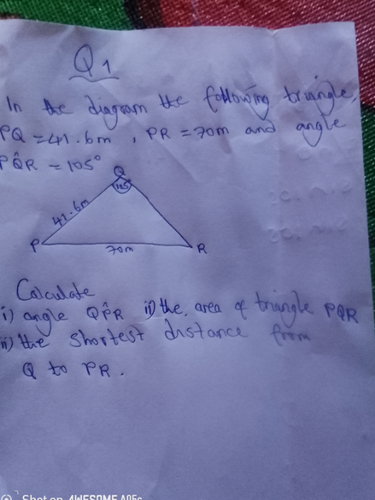 Q1
In the diagram the following triangle,
PQ = 41.6m, PR = 70m and angle
PQ̂R = 105°
Q
105
41.6m
P
70m
R
Calculate
i) angle QP̂R ii) the area of triangle PQR
ii) the shortest distance from
Q to PR.
Shot on AWESOME A05s